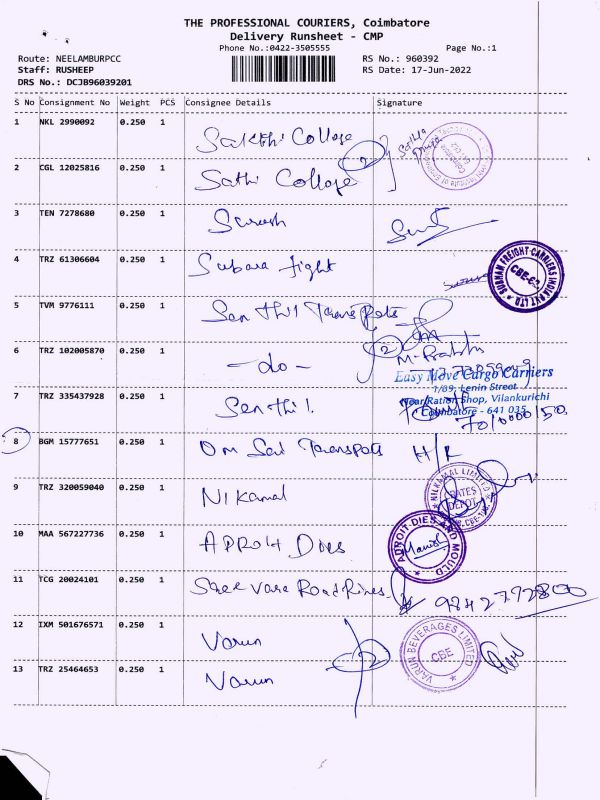 THE PROFESSIONAL COURIERS, Coimbatore
Delivery Runsheet - CMP
Phone No.:0422-3505555 Page No.:1
Route: NEELAMBURPCC RS No.: 960392
Staff: RUSHEEP RS Date: 17-Jun-2022
DRS No.: DCJB96039201
S No Consignment No Weight PCS Consignee Details Signature
1 NKL 2990092 0.250 1 Sakthi College
2 CGL 12025816 0.250 1 Sathi College
3 TEN 7278680 0.250 1 Suresh
4 TRZ 61306604 0.250 1 Subara fight
SUBHAM FREIGHT CARRIERS INDIA PVT LTD
CBE-62
5 TVM 9776111 0.250 1 Senthil Transpots
6 TRZ 102005870 0.250 1 -do-
Easy Move Cargo Carriers
1/89, Lenin Street
Near Ration Shop, Vilankurichi
Coimbatore - 641 035
7 TRZ 335437928 0.250 1 Senthil.
8 BGM 15777651 0.250 1 Om Sai Transpots H/R
9 TRZ 320059040 0.250 1 Nikamal
NILKAMAL LIMITED
10 MAA 567227736 0.250 1 APROH Dies
ADROIT DIES AND MOULD
11 TCG 20024101 0.250 1 Shree Vare Road 9842772800
12 IXM 501676571 0.250 1 Varun
VARUN BEVERAGES LIMITED
CBE
13 TRZ 25464653 0.250 1 Varun